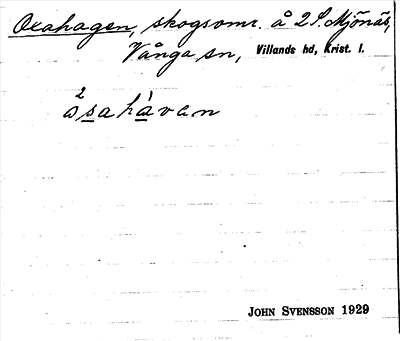 Oxahagen, skogsomr. å 2 S. Mjönäs,
Vånga sn, Villands hd, Krist. l.
2 åsahàvan
JOHN SVENSSON 1929